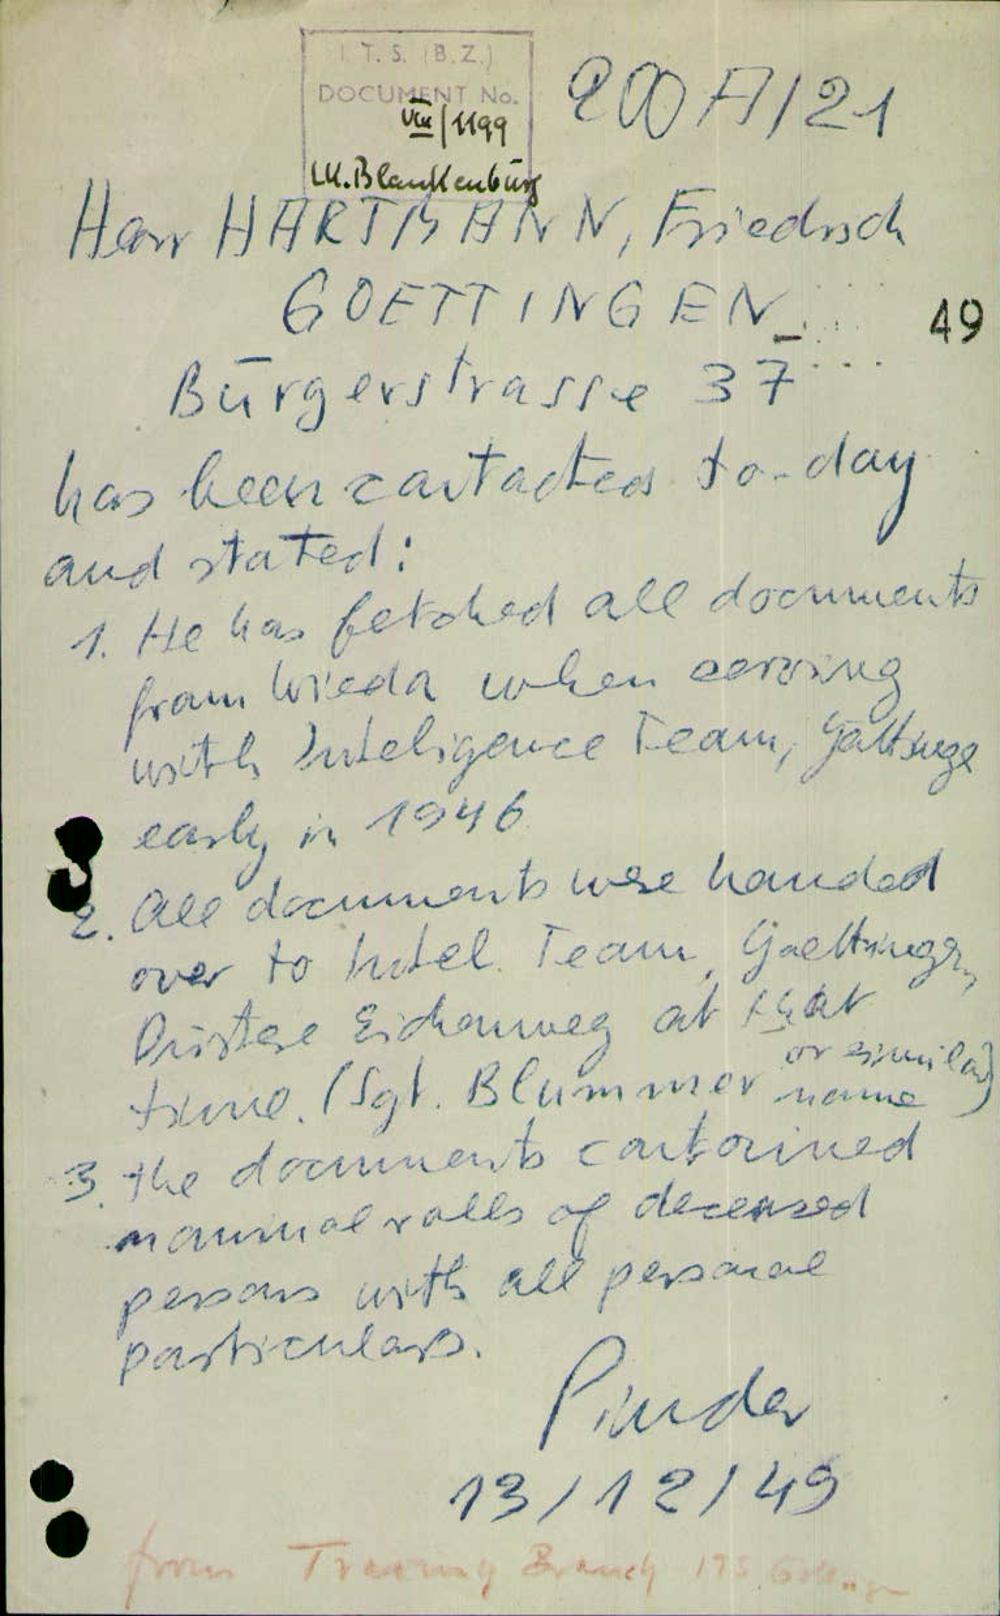 I. T. S. (B.Z.)
DOCUMENT No.
VIII/1199
LK. Blankenburg
200 A/21
Herr HARTMANN, Friedrich
GOETTINGEN
49
Bürgerstrasse 37
has been contacted to-day
and stated:
1. He has fetched all documents
from Wieda when serving
with Inteligence Team,
early in 1946
2. All documents were handed
over to Intel. Team, Goettingen,
Düstere Eichenweg at that
time. (Sgt. Blummer or similar name)
3. the documents contained
nominal rolls of deceased
persons with all personal
particulars.
Pinder
13/12/49
from Tracing Branch ITS